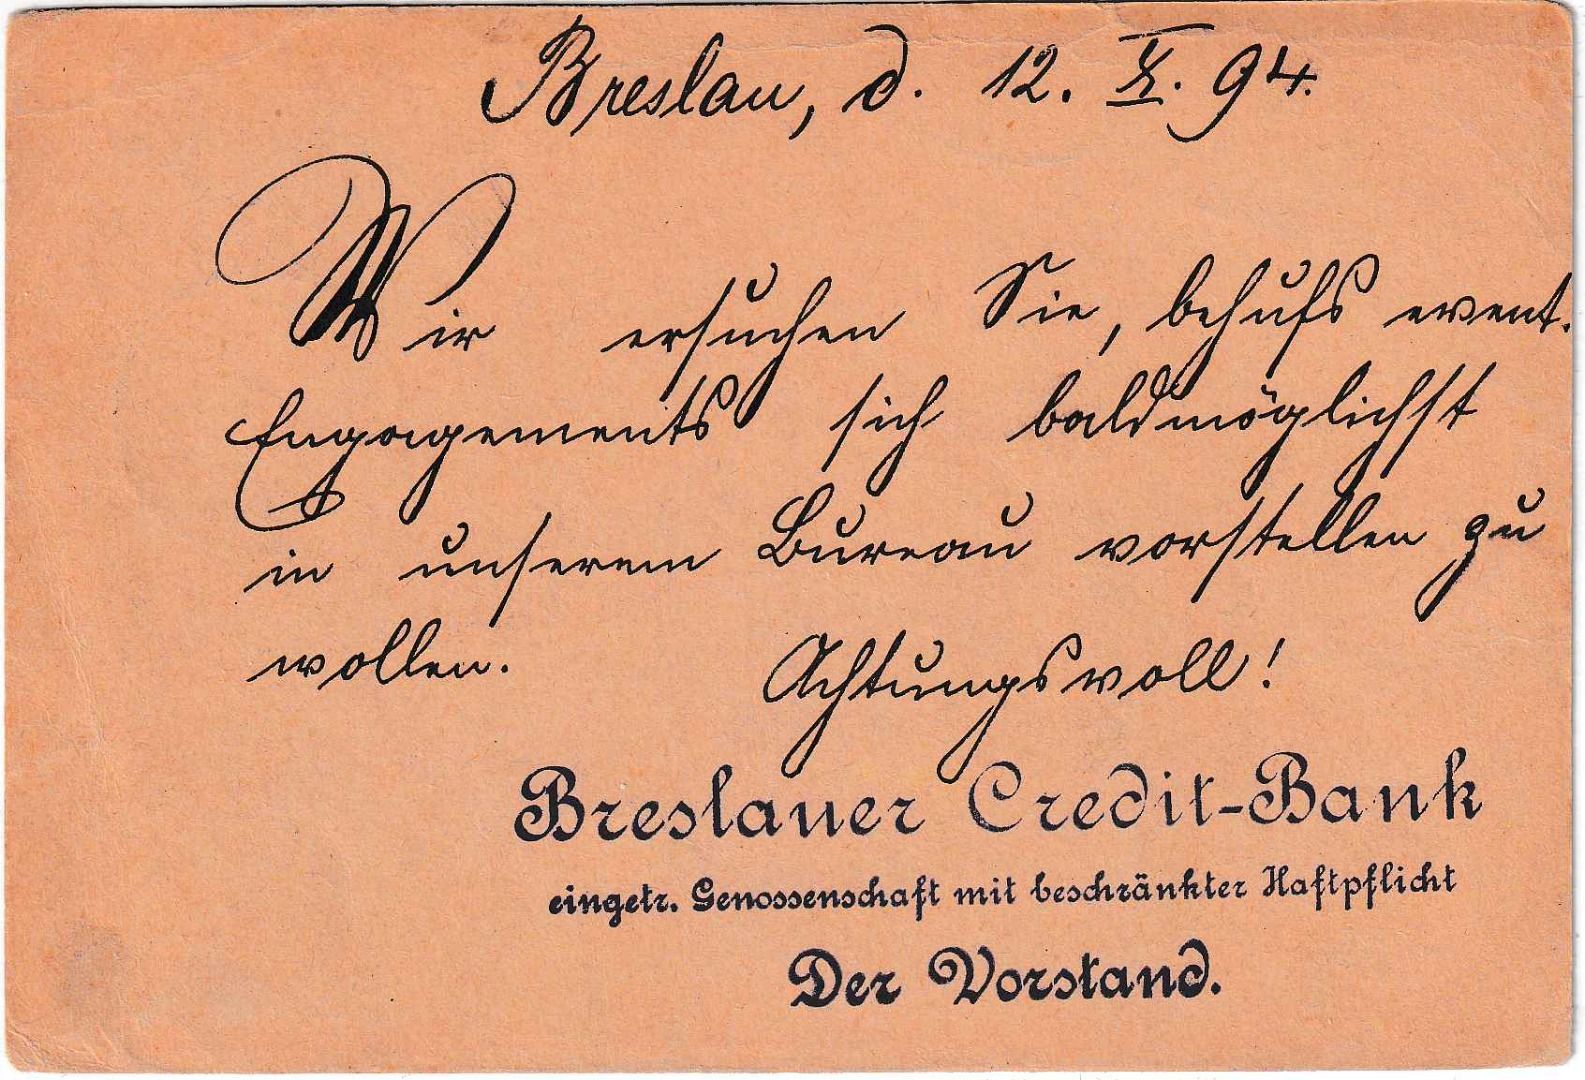 Breslau, d. 12. X. 94.
Wir ersuchen Sie, behufs event.
Engagements sich baldmöglichst
in unserem Bureau vorstellen zu
wollen. Achtungsvoll!
Breslauer Credit-Bank
eingetr. Genossenschaft mit beschränkter Haftpflicht
Der Vorstand.